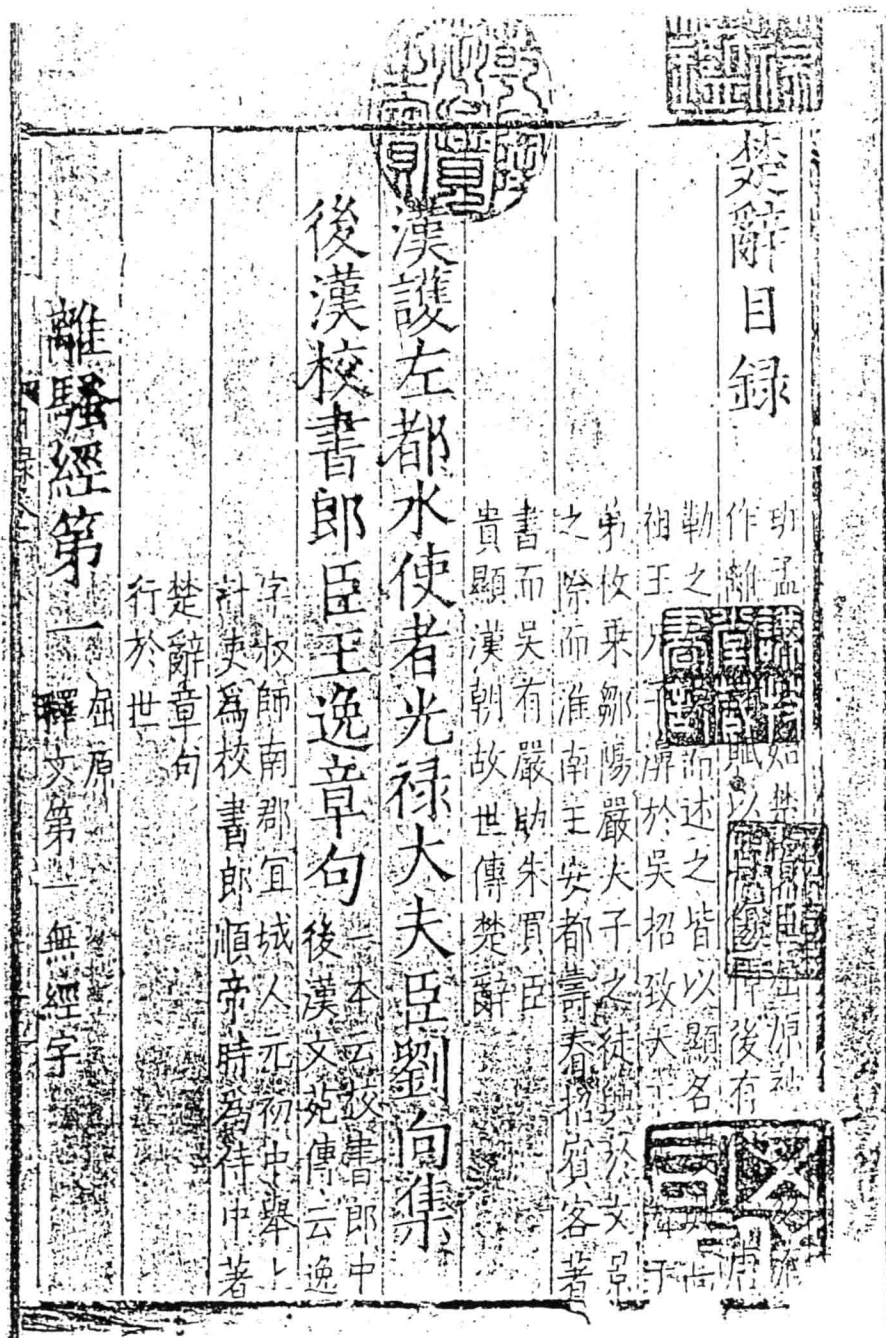 楚辭目録
班孟 始楚賢臣屈原被
作離 賦以 傷悼後有 唐
勒之 而述之皆以顯名
祖王兄子濞於吳招致天 子
弟枚乗鄒陽嚴夫子之徒興於文景
之際而淮南王安都壽春招賓客著
書而吳有嚴助朱買臣
貴顯漢朝故世傳楚辭
漢護左都水使者光禄大夫臣劉向集
後漢校書郎臣王逸章句
一本云校書郎中
後漢文苑傳云逸
字叔師南郡宜城人元初中舉上
計吏爲校書郎順帝時爲侍中著
楚辭章句
行於世
離騷經第一
屈原
釋文第一無經字